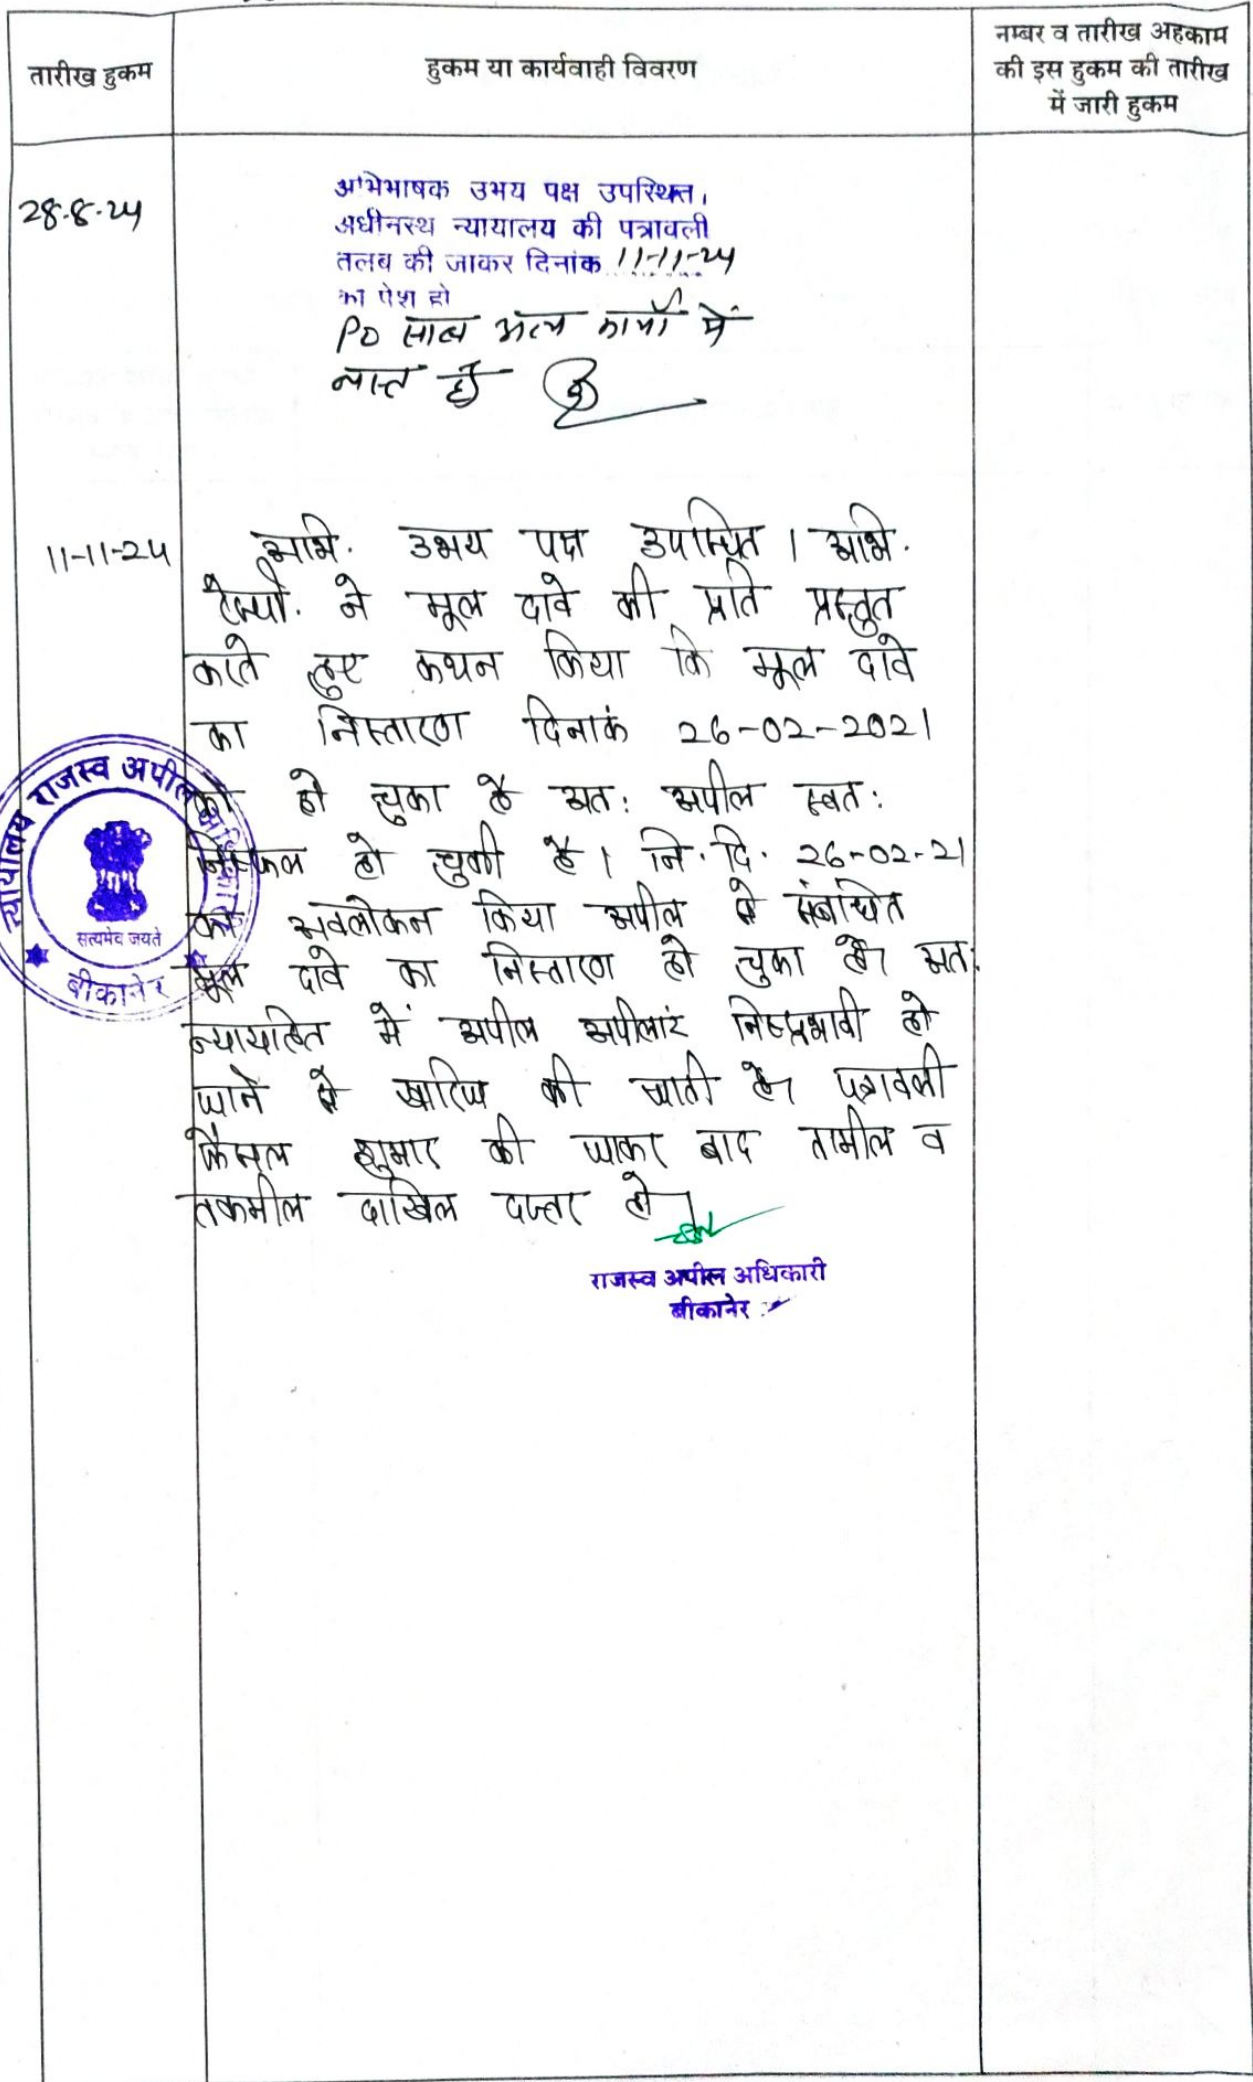 तारीख हुकम
हुकम या कार्यवाही विवरण
नम्बर व तारीख अहकाम
की इस हुकम की तारीख
में जारी हुकम
28-8-24
अभिभाषक उभय पक्ष उपस्थित।
अधीनस्थ न्यायालय की पत्रावली
तलब की जाकर दिनांक 11-11-24
का पेश हो
PO साब अन्य कार्यों में
व्यस्त है
11-11-24
अभि. उभय पक्ष उपस्थित। अभि.
रेस्पो. ने मूल दावे की प्रति प्रस्तुत
करते हुए कथन किया कि मूल दावे
का निस्तारण दिनांकं 26-02-2021
को हो चुका है अत: अपील स्वत:
निष्फल हो चुकी है। नि. दि. 26-02-21
का अवलोकन किया अपील से संबंधित
मूल दावे का निस्तारण हो चुका है। अत:
न्यायहित में अपील अपीलांट निष्प्रभावी हो
जाने से खारिज की जाती है। पत्रावली
फैसल शुमार की जाकर बाद तामील व
तकमील दाखिल दफ्तर हो।
राजस्व अपील अधिकारी
बीकानेर
न्यायालय राजस्व अपील अधिकारी
सत्यमेव जयते
बीकानेर